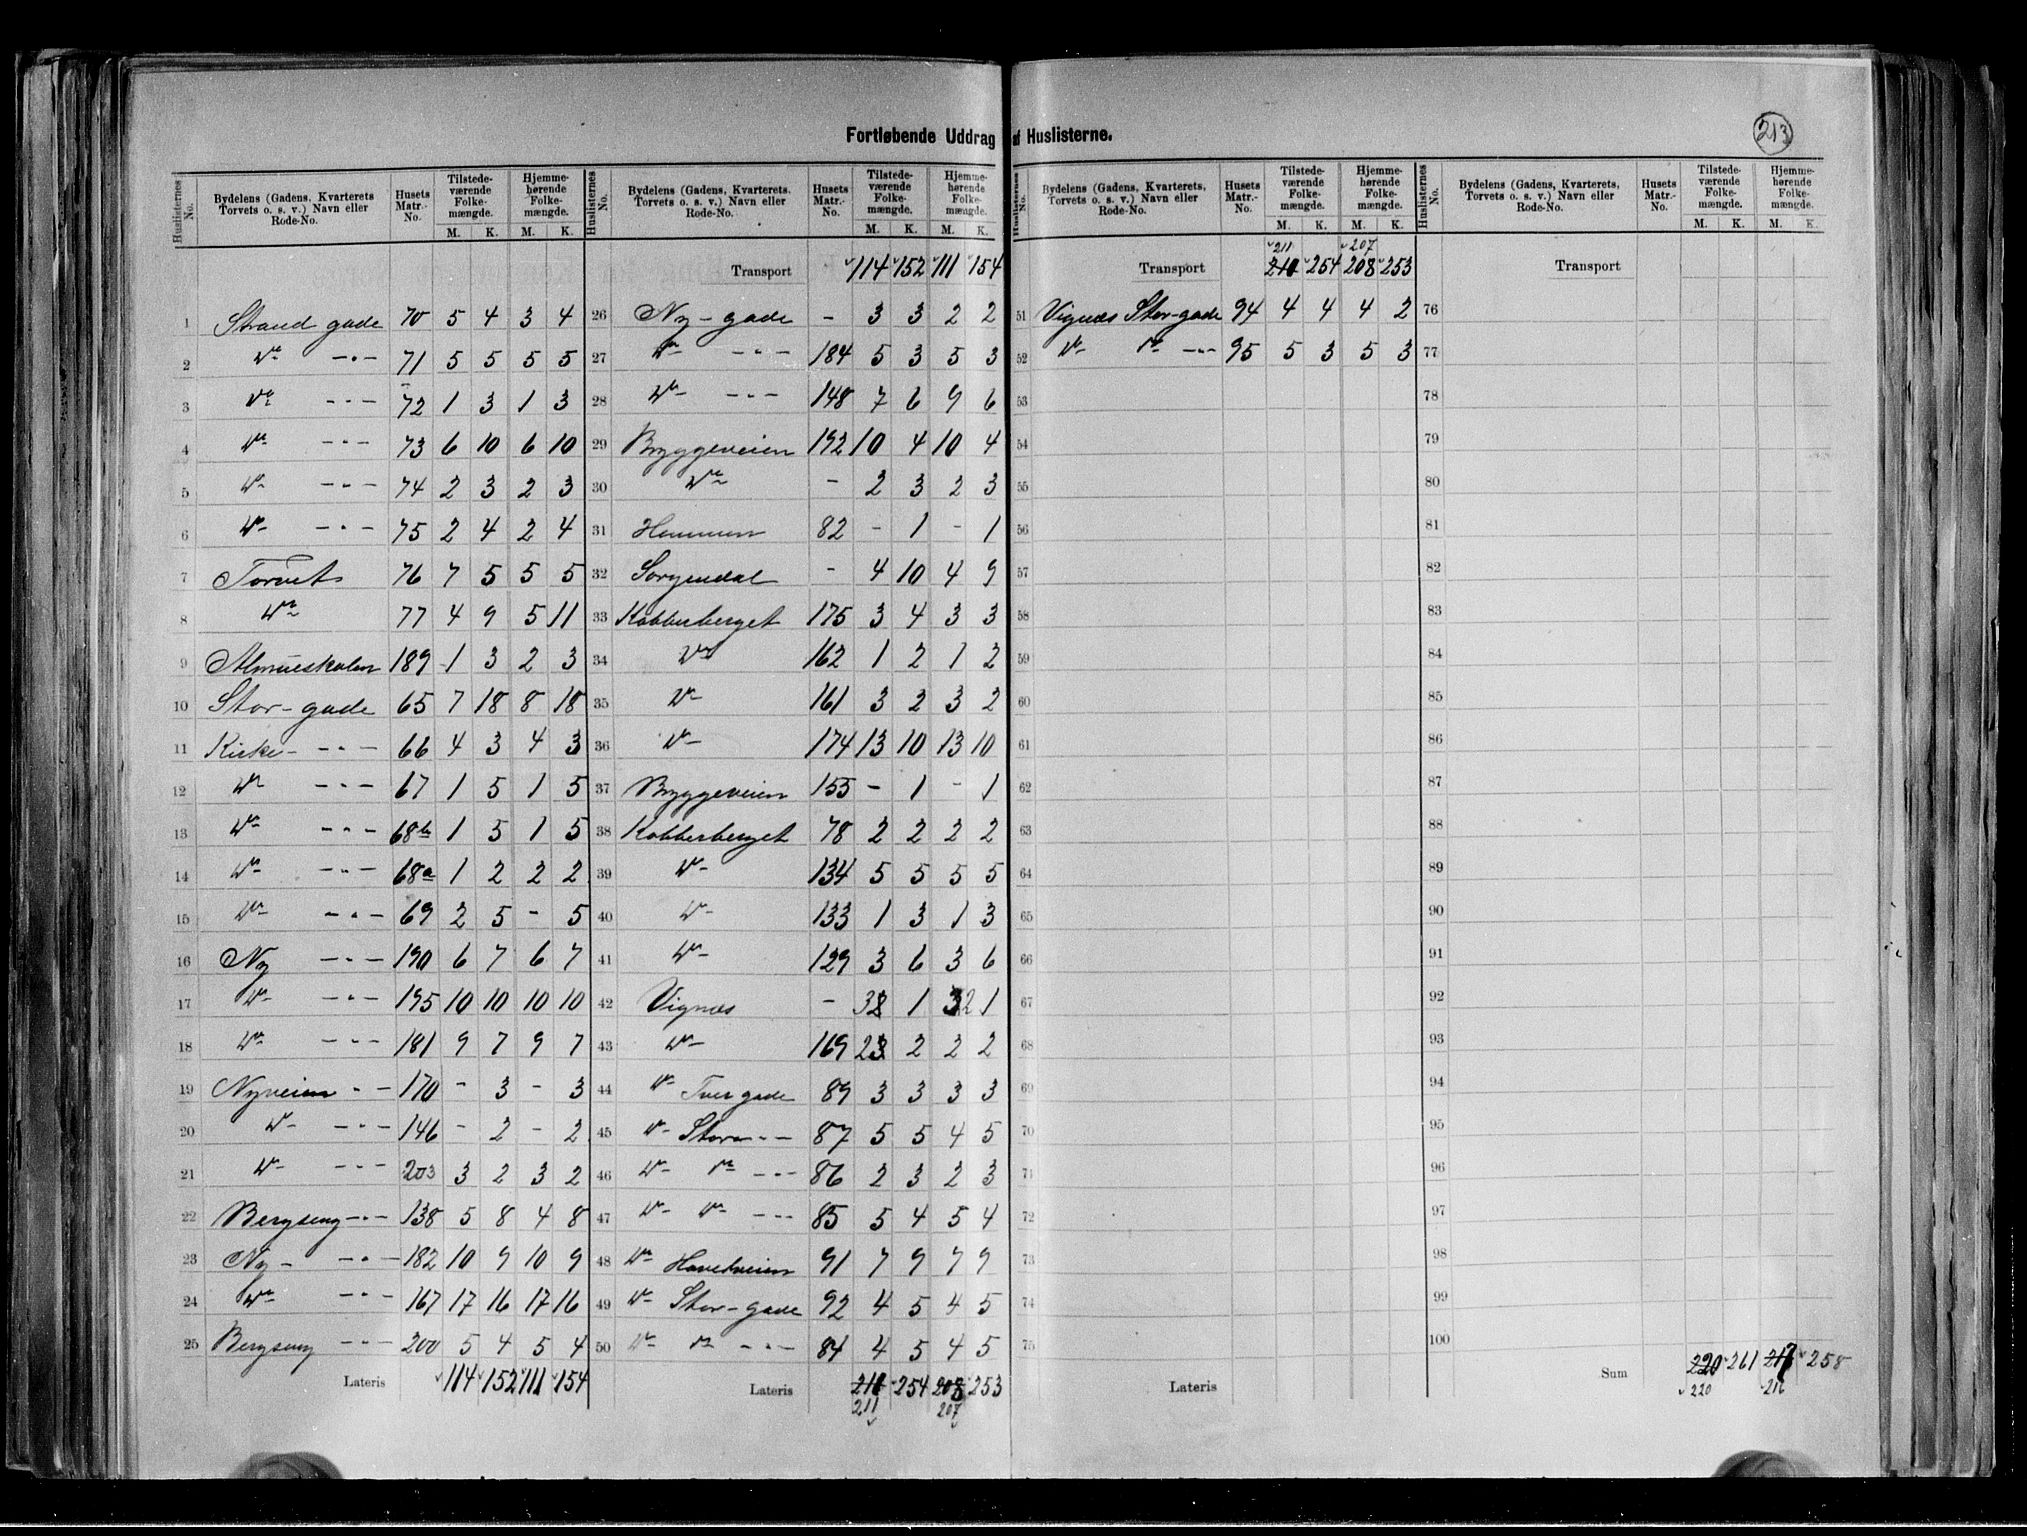 Fortløbende Uddrag af Huslisterne.
213
Huslisternes No. Bydelens (Gadens, Kvarterets, Torvets o. s. v.) Navn eller Rode-No. Husets Matr.-No. Tilstedeværende Folkemængde. M. K. Hjemmehørende Folkemængde. M. K.
1 Strand gade 70 5 4 3 4
2 Do -"- 71 5 5 5 5
3 Do -"- 72 1 3 1 3
4 Do -"- 73 6 10 6 10
5 Do -"- 74 2 3 2 3
6 Do -"- 75 2 4 2 4
7 Torvet 76 7 5 5 5
8 Do 77 4 9 5 11
9 Almueskolen 189 1 3 2 3
10 Stor-gade 65 7 18 8 18
11 Kirke- -"- 66 4 3 4 3
12 Do -"- 67 1 5 1 5
13 Do -"- 68b 1 5 1 5
14 Do -"- 68a 1 2 2 2
15 Do -"- 69 2 5 - 5
16 Ny -"- 190 6 7 6 7
17 Do -"- 195 10 10 10 10
18 Do -"- 181 9 7 9 7
19 Nyveien -"- 170 - 3 - 3
20 Do -"- 146 - 2 - 2
21 Do -"- 203 3 2 3 2
22 Bergseng -"- 138 5 8 4 8
23 Ny- -"- 182 10 9 10 9
24 Do -"- 167 17 16 17 16
25 Bergseng -"- 200 5 4 5 4
Lateris 114 152 111 154
Huslisternes No. Bydelens (Gadens, Kvarterets, Torvets o. s. v.) Navn eller Rode-No. Husets Matr.-No. Tilstedeværende Folkemængde. M. K. Hjemmehørende Folkemængde. M. K.
Transport 114 152 111 154
26 Ny-gade - 3 3 2 2
27 Do -"- 184 5 3 5 3
28 Do -"- 148 7 6 9 6
29 Bryggeveien 192 10 4 10 4
30 Do - 2 3 2 3
31 82 - 1 - 1
32 Sorgendal - 4 10 4 9
33 Kobberberget 175 3 4 3 3
34 Do 162 1 2 1 2
35 Do 161 3 2 3 2
36 Do 174 13 10 13 10
37 Bryggeveien 155 - 1 - 1
38 Kobberberget 78 2 2 2 2
39 Do 134 5 5 5 5
40 Do 133 1 3 1 3
41 Do 129 3 6 3 6
42 Vignæs - 3 1 2 1
43 Do 169 2 2 2 2
44 Do Tver gade 89 3 3 3 3
45 Do Stor -"- 87 5 5 4 5
46 Do Do -"- 86 2 3 2 3
47 Do Do -"- 85 5 4 5 4
48 Do Hovedveien 91 7 9 7 9
49 Do Stor-gade 92 4 5 4 5
50 Do Do -"- 84 4 5 4 5
Lateris 210 254 208 253
211 207
Huslisternes No. Bydelens (Gadens, Kvarterets, Torvets o. s. v.) Navn eller Rode-No. Husets Matr.-No. Tilstedeværende Folkemængde. M. K. Hjemmehørende Folkemængde. M. K.
211 207
Transport 210 254 208 253
51 Vignæs Stor-gade 94 4 4 4 2
52 Do Do -"- 95 5 3 5 3
53
54
55
56
57
58
59
60
61
62
63
64
65
66
67
68
69
70
71
72
73
74
75
Lateris
Huslisternes No. Bydelens (Gadens, Kvarterets, Torvets o. s. v.) Navn eller Rode-No. Husets Matr.-No. Tilstedeværende Folkemængde. M. K. Hjemmehørende Folkemængde. M. K.
Transport
76
77
78
79
80
81
82
83
84
85
86
87
88
89
90
91
92
93
94
95
96
97
98
99
100
Sum 220 261 217 258
220 216